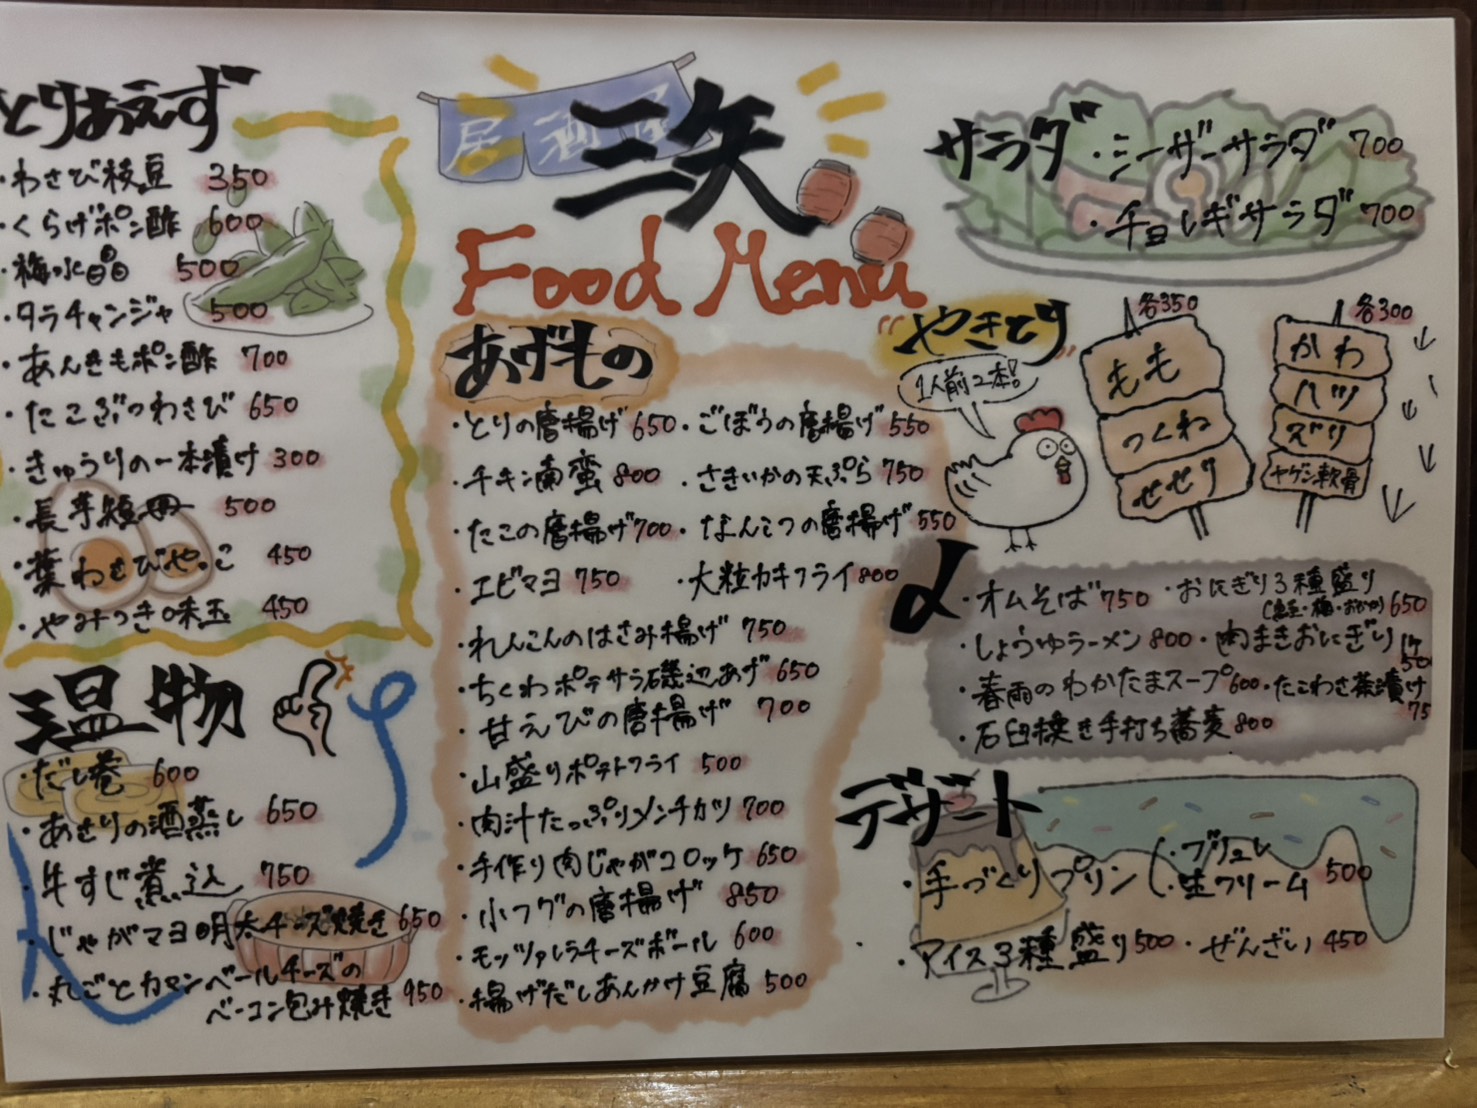 とりあえず
・わさび枝豆 350
・くらげポン酢 600
・梅水晶 500
・タラチャンジャ 500
・あんきもポン酢 700
・たこぶつわさび 650
・きゅうりの一本漬け 300
・長芋短冊 500
・葉わさびやっこ 450
・やみつき味玉 450
温物
・だし巻 600
・あさりの酒蒸し 650
・牛すじ煮込 750
・じゃがマヨ明太チーズ焼き 650
・丸ごとカマンベールチーズの
ベーコン包み焼き 950
居酒屋
三矢
Food Menu
あげもの
・とりの唐揚げ 650 ・ごぼうの唐揚げ 550
・チキン南蛮 800 ・さきいかの天ぷら 750
・たこの唐揚げ 700 ・なんこつの唐揚げ 550
・エビマヨ 750 ・大粒カキフライ 800
・れんこんのはさみ揚げ 750
・ちくわポテサラ磯辺あげ 650
・甘えびの唐揚げ 700
・山盛りポテトフライ 500
・肉汁たっぷりメンチカツ 700
・手作り肉じゃがコロッケ 650
・小フグの唐揚げ 850
・モッツァレラチーズボール 600
・揚げだしあんかけ豆腐 500
サラダ ・シーザーサラダ 700
・チョレギサラダ 700
やきとり
1人前2本!
各350
もも
つくね
せせり
各300
かわ
ハツ
ズリ
ヤゲン軟骨
〆
・オムそば 750 ・おにぎり3種盛り
(鮭・梅・おかか) 650
・しょうゆラーメン 800 ・肉まきおにぎり 1ケ
・春雨のわかたまスープ 600 ・たこわさ茶漬け
・石臼挽き手打ち蕎麦 800
デザート
・手づくりプリン ・ブリュレ ・生クリーム 500
・アイス3種盛り 500 ・ぜんざい 450